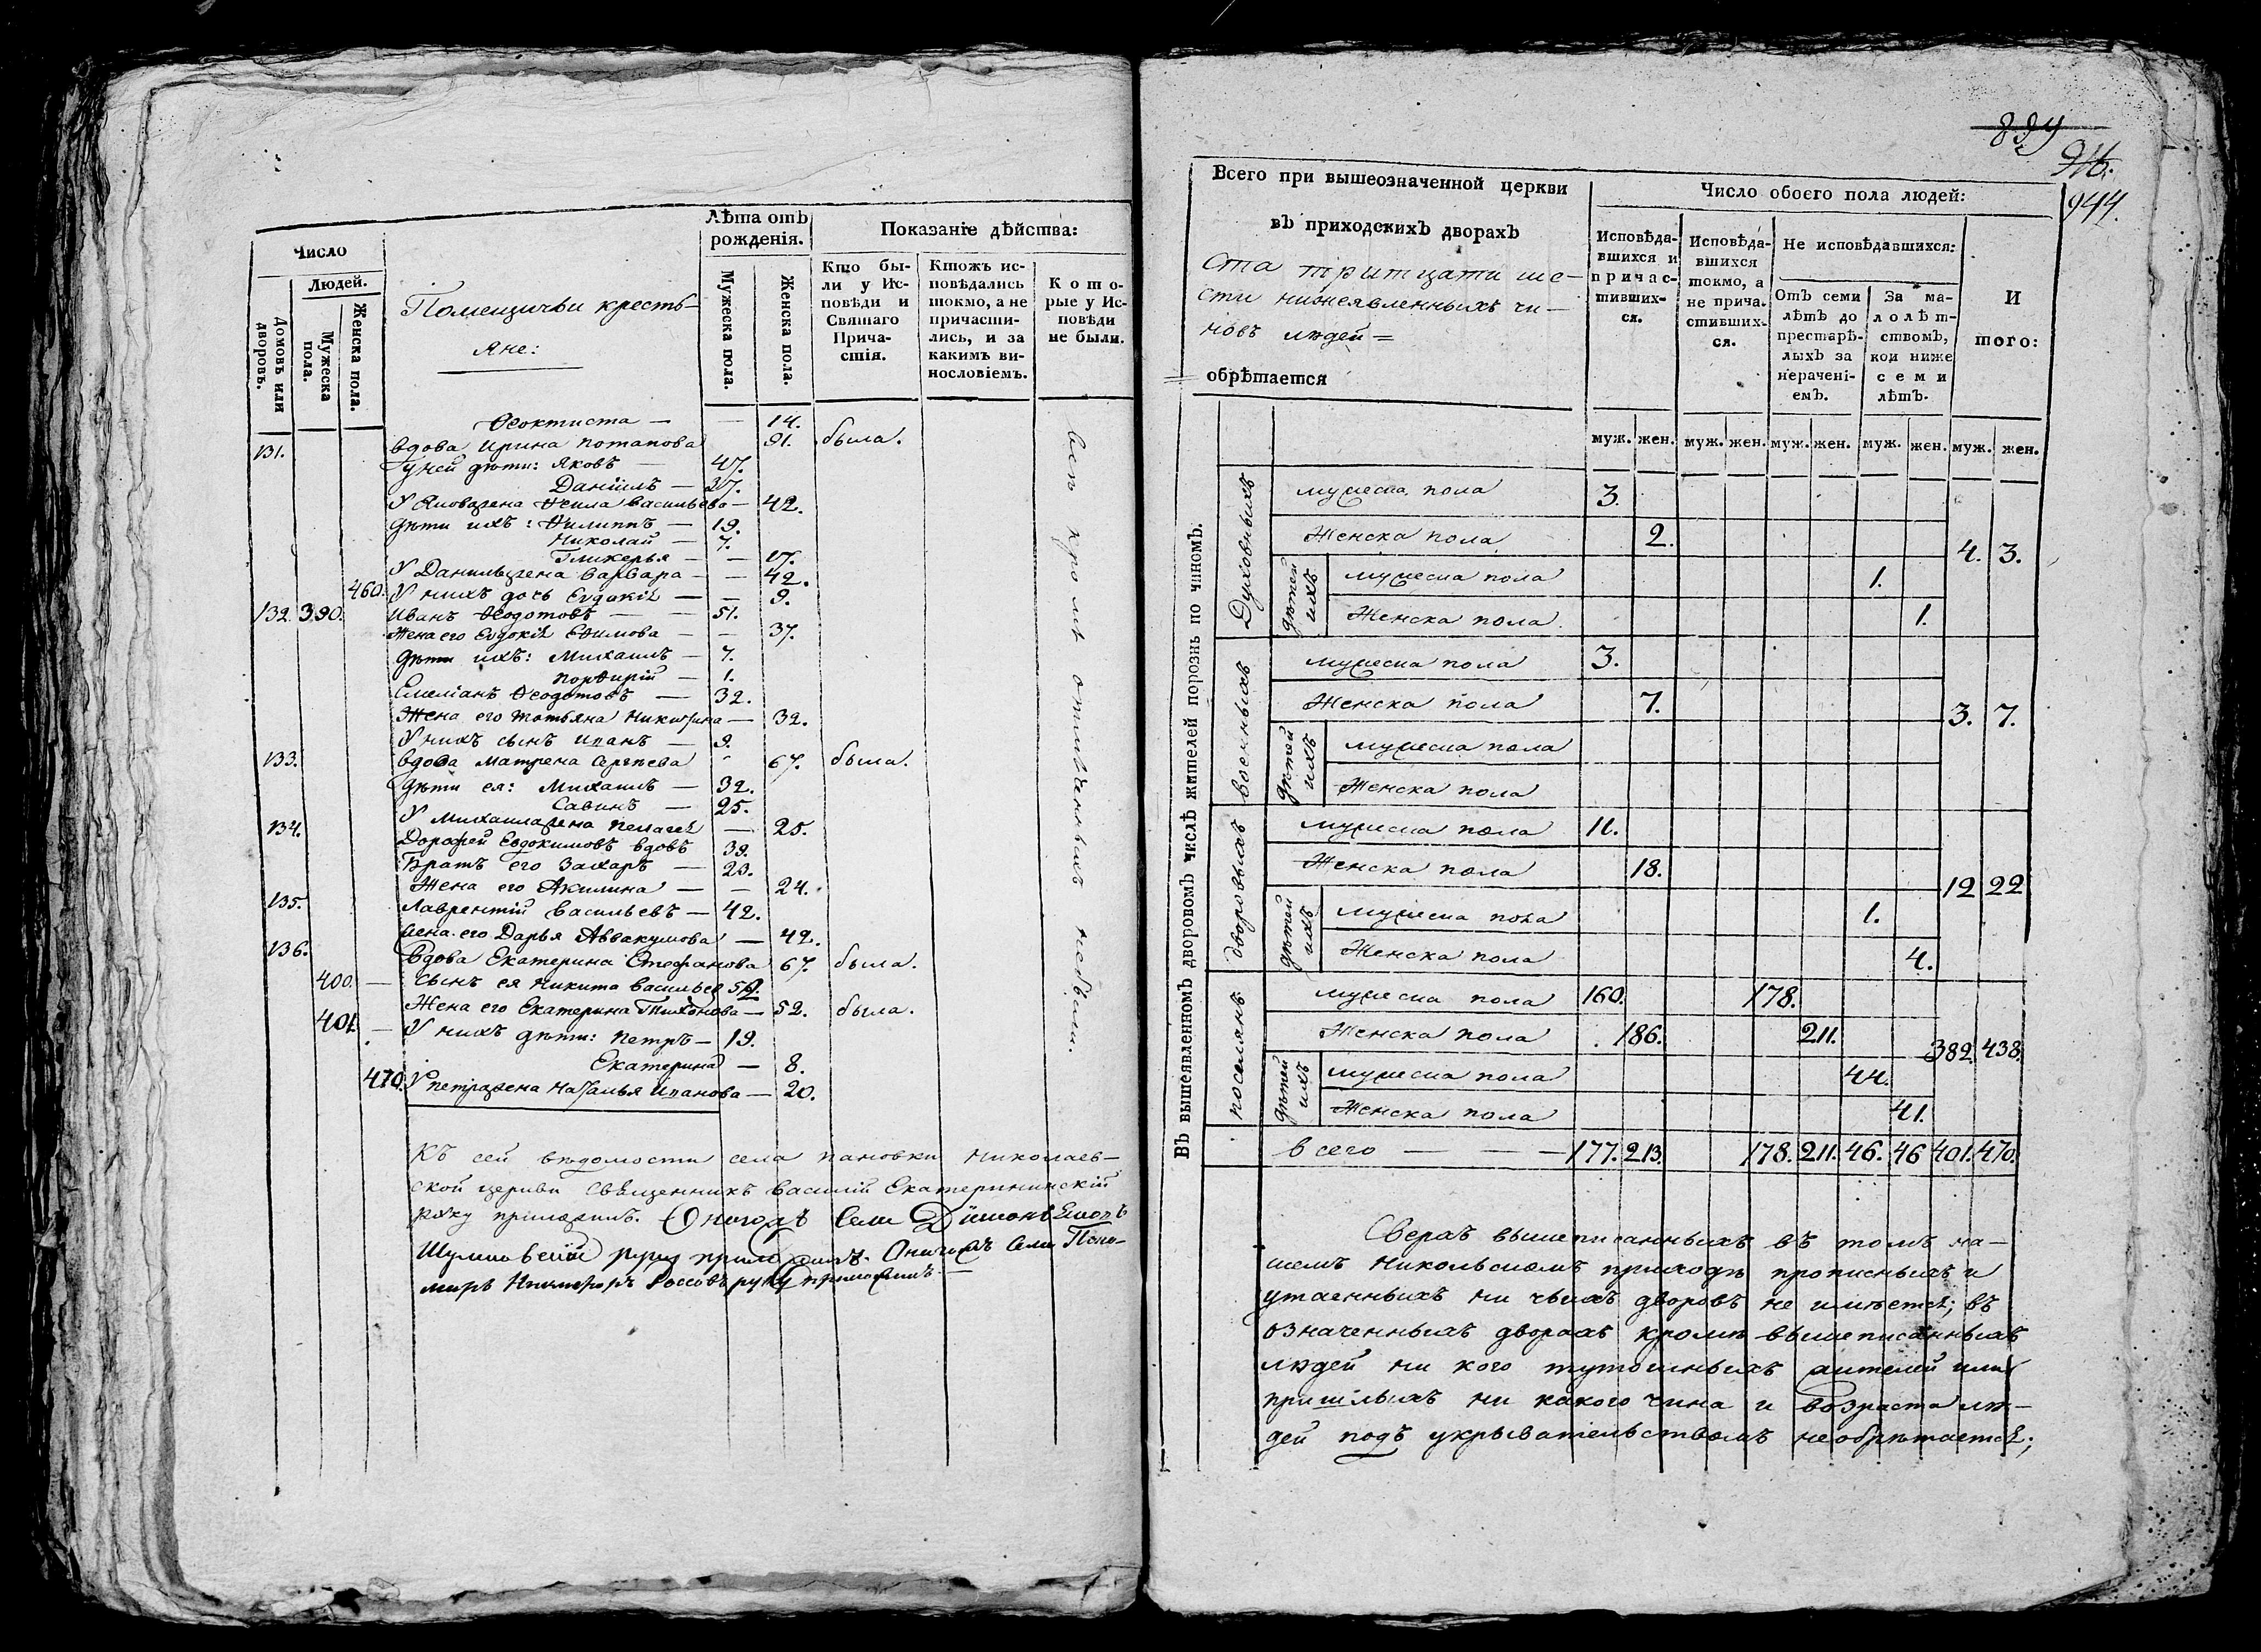 Число
Людей.
Домовъ или дворовъ.
Мужеска пола.
Женска пола.
Помещичьи кресть-
яне:
Лѣта отъ
рожденія.
Мужеска пола.
Женска пола.
Показаніе дѣйства:
Кто бы-
ли у Ис-
повѣди и
Святаго
Прича-
стія.
Ктожъ ис-
повѣдались
токмо, а не
причасти-
лись, и за
какимъ ви-
нословіемъ.
Кото-
рые у Ис-
повѣди
не были.
Ѳеоктиста — — 14.
131. вдова Ирина Потапова 91. была.
У ней дѣти: Яковъ — 47.
Даніилъ — 37.
У Якова жена Ѳекла Васильева — 42.
дѣти ихъ: Филиппъ — 19.
Николай — 7.
Гликерья — — 17.
У Данилы жена Варвара — — 42.
460. У нихъ дочь Евдокія — — 9.
132. 390. Иванъ Ѳеодотовъ — — 51.
Жена его Евдокія Ефимова — — 37.
дѣти ихъ: Михаилъ — 7.
Порфирій — 1.
Емеліанъ Ѳеодотовъ — 32.
Жена его Татьяна Никитина — 32.
У нихъ сынъ Иванъ — 9.
133. вдова Матрена Сергѣева 67. была.
дѣти ея: Михаилъ — 32.
Савинъ — 25.
У Михаила жена Пелагея — 25.
134. Дорофей Евдокимовъ вдовъ 39.
Братъ его Захаръ — 23.
Жена его Акилина — — 24.
135. Лаврентій Васильевъ — 42.
Жена его Дарья Аввакумова — 42.
136. Вдова Екатерина Стефанова 67. была.
400. — Сынъ ея Никита Васильев 52.
Жена его Екатерина Тихонова — 52. была.
401. — У нихъ дѣти: Петръ — 19.
Екатерина — 8.
470. У Петра жена Наталья Иванова — 20.
всѣ кромѣ отмѣченныхъ небыли.
Къ сей вѣдомости села Пановки Николаев-
ской церкви священникъ Василій Екатерининскій
руку приложилъ. Оногожъ села
руку приложилъ. Оногожъ села Поно-
марь Никифоръ Россовъ руку приложилъ. —
944.
Всего при вышеозначенной церкви
въ приходскихъ дворахъ
Ста тритцати ше-
сти нижеявленныхъ чи-
новъ людей =
обрѣтается
Число обоего пола людей:
Исповѣда-
вшихся и
причас-
тивших-
ся.
Исповѣда-
вшихся
токмо, а
не прича-
стивших-
ся.
Не исповѣдавшихся:
Отъ семи
лѣтъ до
престарѣ-
лыхъ за
нерачені-
емъ.
За ма-
лолѣт-
ствомъ,
кои ниже
семи
лѣтъ.
И
того:
муж. жен. муж. жен. муж. жен. муж. жен. муж. жен.
Въ вышеявленномъ дворовомъ числѣ жителей порознь по чиномъ.
Духовныхъ
мужеска пола 3.
Женска пола 2.
4. 3.
дѣтей ихъ
мужеска пола 1.
Женска пола 1.
военныхъ
мужеска пола 3.
Женска пола 7.
3. 7.
дѣтей ихъ
мужеска пола
Женска пола
дворовыхъ
мужеска пола 11.
Женска пола 18.
12 22
дѣтей ихъ
мужеска пола 1.
Женска пола 4.
поселянъ
мужеска пола 160. 178.
Женска пола 186. 211.
382. 438.
дѣтей ихъ
мужеска пола 44.
Женска пола 41.
всего — — — 177. 213. 178. 211. 46. 46 401. 470.
Сверхъ вышеписанныхъ въ томъ на-
шемъ Никольскомъ приходѣ прописныхъ и
утаенныхъ ни чьихъ дворовъ не имѣется; въ
означенныхъ дворахъ кромѣ вышеписанныхъ
людей ни кого тутошныхъ жителей или
пришлыхъ ни какого чина и возраста лю-
дей подъ укрывательствомъ необрѣтается;